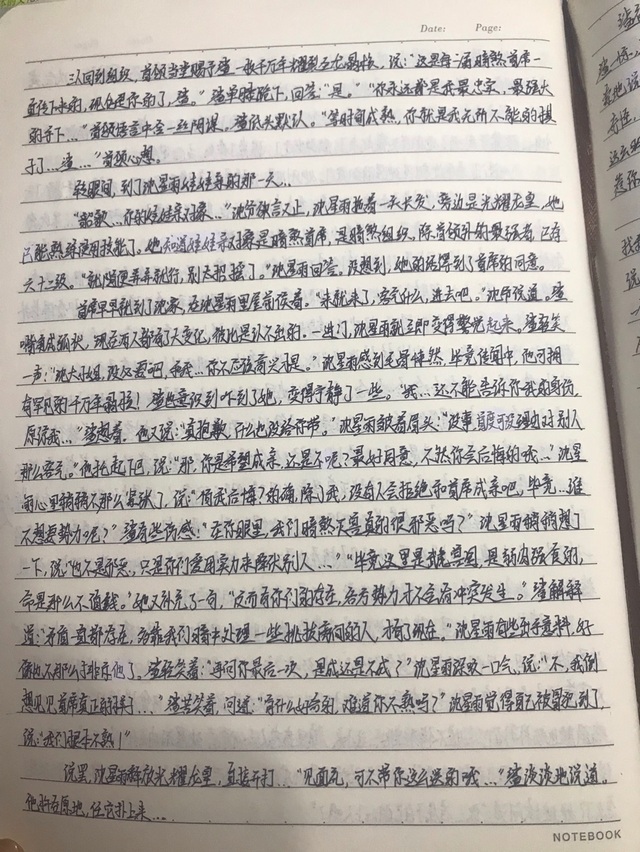 Date: Page:
一回到组织，首领当堂赐予渣一张千万年耀裂之龙晶核，说：“这是每一届暗煞首席一
直传下来的，现在是你的了，渣。”渣单膝跪下，回答：“是。”“你永远都是我最忠实、最强大
的手下…”首领语言中含一丝阴谋。渣低头默认。“等时间成熟，你就是我无所不能的棋
子了…渣…”首领心想。
转眼间，到了沈星雨娃娃亲的那一天…
“，你的娃娃亲对象…”沈爷欲言又止，沈星雨拖着一头长发，旁边是光耀龙皇，她
已能熟练使用技能了。她知道娃娃亲对象是暗煞首席，是暗煞组织，除首领外的最强者，已有
六十二级。“就随便弄弄就行，别太招摇了。”沈星雨回答。没想到，她的话得到了首席的同意。
首席早早就到了沈家，在沈星雨里屋前候着。“来就来了，客什么，进去吧。”沈爷说道。渣
嘴角成弧状，现在两人都有了大变化，彼此是认不出的。一进门，沈星雨就立即变得警觉起来，渣轻笑
一声：“沈大小姐，没必要吧，和我…你不应该高兴才是。”沈星雨感到毛骨悚然，毕竟传闻中，他可拥
有罕见的千万年融技！渣也意识到吓到了她，变得宁静了一些。“我…还不能告诉你我的身份，
原谅我…”渣想着，他又说：“真抱歉，什么也没给你带。”沈星雨皱着眉头：“没事，首席可没理由对别人
那么客气。”他托起下巴，说：“那，你是希望成亲，还是不呢？最好同意，不然你会后悔的哦…”沈星
雨心里稍稍不那么紧张了，说：“倘我后悔？的确，除了我，没有人会拒绝和首席成亲吧，毕竟…谁
不想要势力呢？”渣有些伤感：“在你眼里，我们暗煞不是真的很邪恶吗？”沈星雨稍稍想了
一下，说：“也不是邪恶，只是你们爱用实力来降伏别人…”“毕竟这里是魂兽国，是弱肉强食的，
命是那么不值钱。”她又补充了一句，“反而有你们的存在，各方势力才不会有冲突发生。”渣解释
道：“矛盾一直都存在，多靠我们暗中处理一些挑拨离间的人，才有了现在。”沈星雨有些出乎意料，好
像也不那么排斥他了。渣轻笑着：“再问你最后一次，是成还是不成？”沈星雨深吸一口气，说：“不，我倒
想见见首席真正的样子…”渣苦笑着，问道：“有什么好看的，难道你不熟吗？”沈星雨觉得自己被冒犯到了，
说：“我们根本不熟！”
说罢，沈星雨释放光耀龙皇，直接开打…“见面礼，可不带你这么送的哦…”渣淡淡地说道。
他站在原地，任它扑上来…
NOTEBOOK